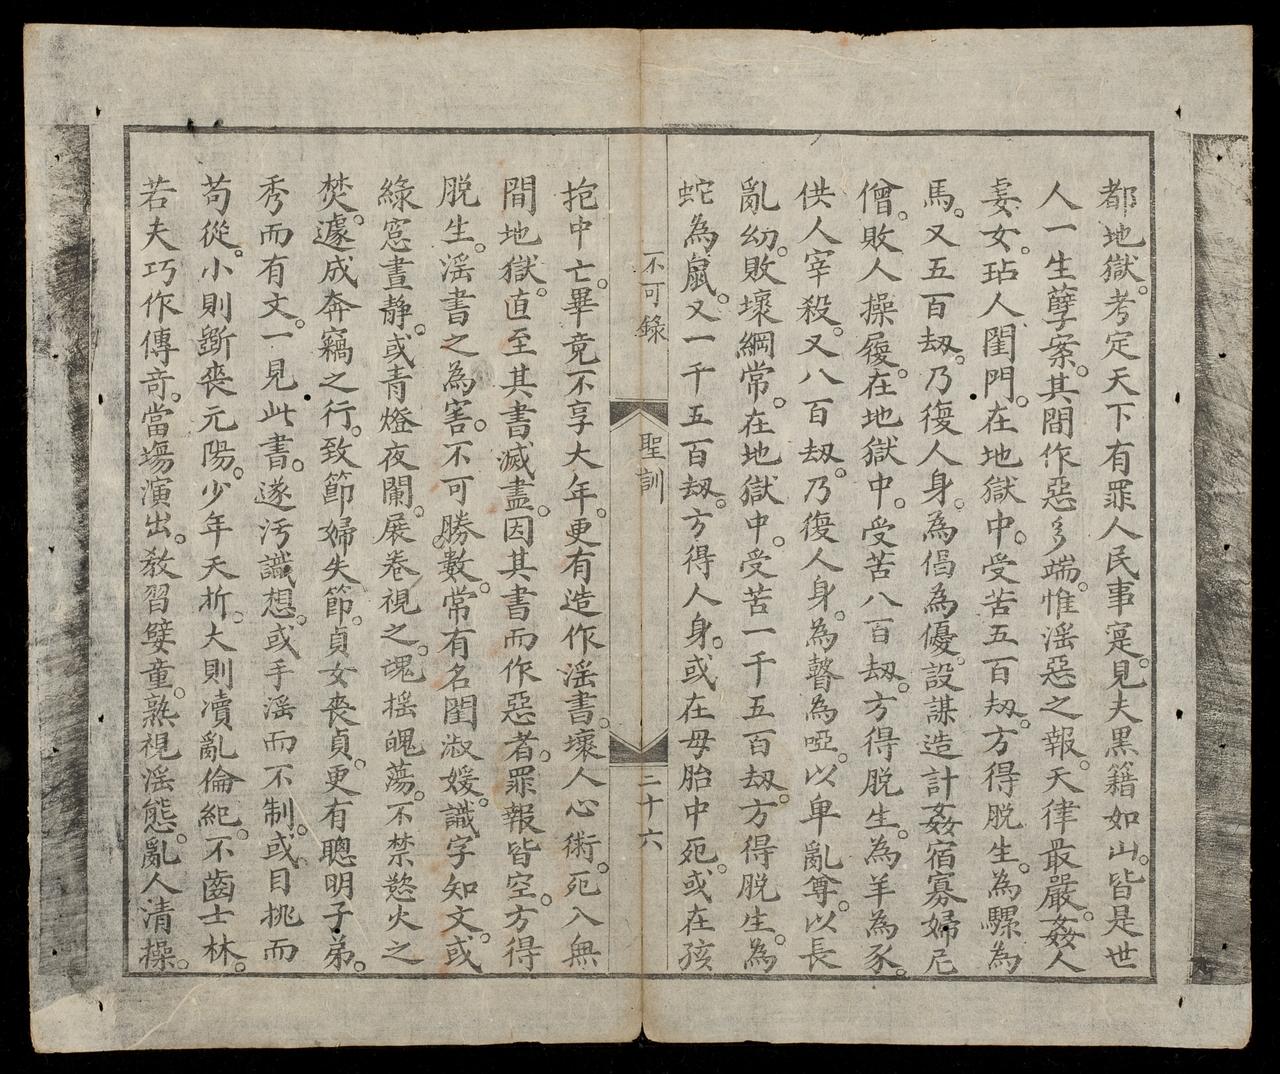 都地獄。考定天下有罪人民事寔。見夫黑籍如山。皆是世
人一生孽案。其間作惡多端。惟淫惡之報。天律最嚴。姦人
妻女。玷人閨門。在地獄中。受苦五百刼。方得脱生。為騾為
馬。又五百刼。乃復人身。為倡為優。設謀造計姦宿寡婦尼
僧。敗人操履。在地獄中。受苦八百刼。方得脱生。為羊為豕。
供人宰殺。又八百刼。乃復人身。為瞽為啞。以卑亂尊。以長
亂幼。敗壞綱常。在地獄中。受苦一千五百刼。方得脱生。為
蛇為鼠。又一千五百刼。方得人身。或在母胎中死。或在孩
不可錄
聖訓
二十六
抱中亡。畢竟不享大年。更有造作淫書。壞人心術。死入無
間地獄。直至其書滅盡。因其書而作惡者。罪報皆空。方得
脱生。淫書之為害。不可勝數。常有名閨淑媛。識字知文。或
綠窓晝静。或青燈夜闌。展卷視之。魂摇魄蕩。不禁慾火之
焚。遽成奔竊之行。致節婦失節。貞女喪貞。更有聰明子弟。
秀而有文。一見此書。遂汚識想。或手淫而不制。或目挑而
苟從。小則斵喪元陽。少年夭折。大則凟亂倫紀。不齒士林。
若夫巧作傳奇。當塲演出。教習孌童。熟視淫態。亂人清操。